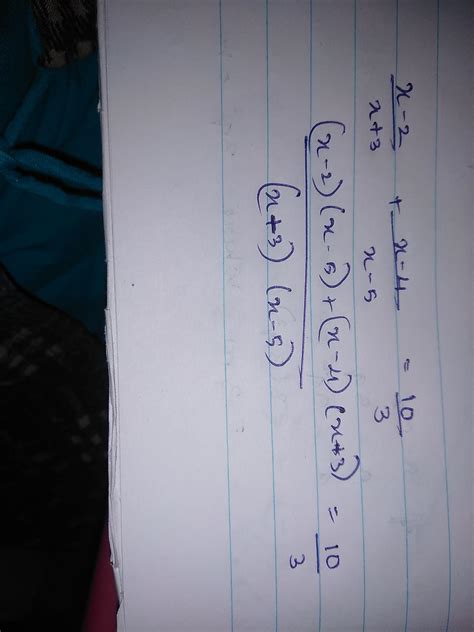 x-2/x+3 + x-4/x-5 = 10/3
(x-2)(x-5)+(x-4)(x+3)/(x+3)(x-5) = 10/3